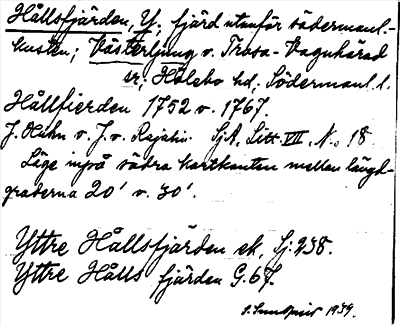 Hållsfjärden, Y; fjärd utanför södermanl.-
kusten; Västerljung o. Trosa-Vagnhärad
sn; Hölebo hd; Södermanl. l.
Hållfierden 1752 o. 1767.
J. Hahn o. J. v. Rajalin. SjA, Litt. VII, N:o 18
Läge inpå södra kartkanten mellan längd-
graderna 20' o. 30'.
Yttre Hållsfjärden ek, Sj: 238.
Yttre Hålls fjärden G. 67.
S. Sundqvist 1939.